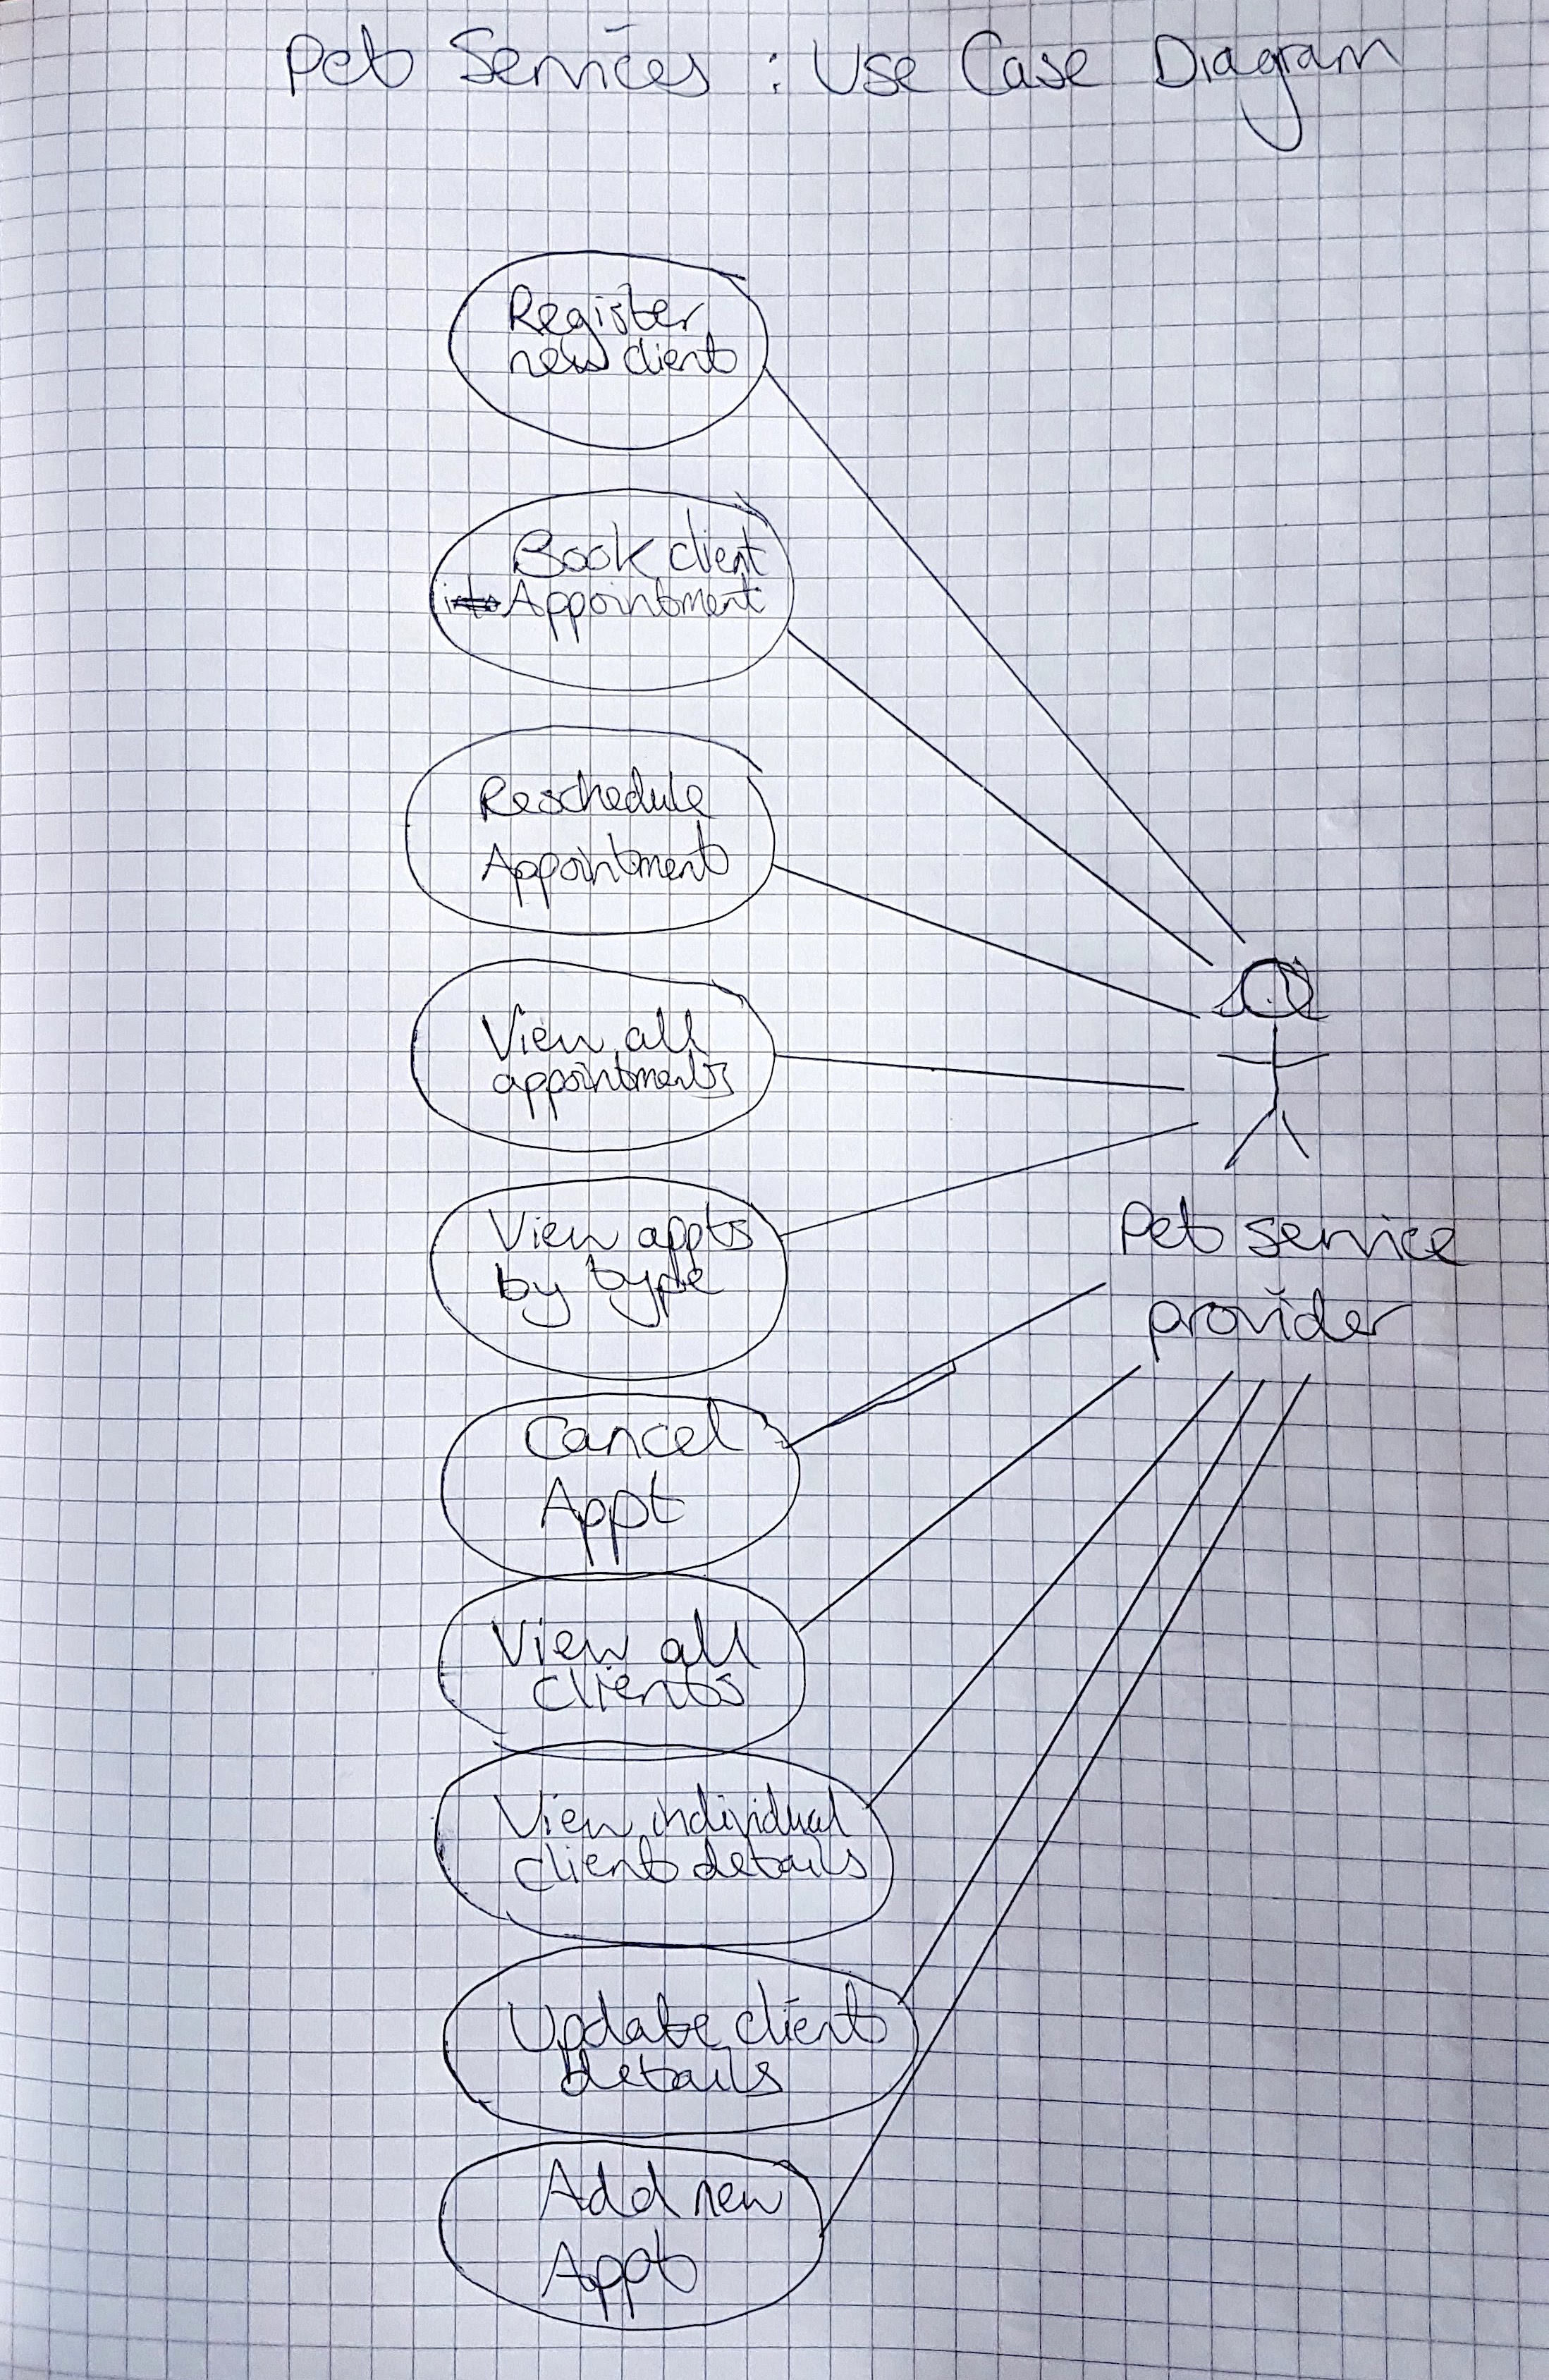 Pet Services : Use Case Diagram
Register
new client
Book client
into Appointment
Reschedule
Appointment
View all
appointments
View appts
by type
Pet service
provider
Cancel
Appt
View all
clients
View individual
client details
Update client
details
Add new
Appt